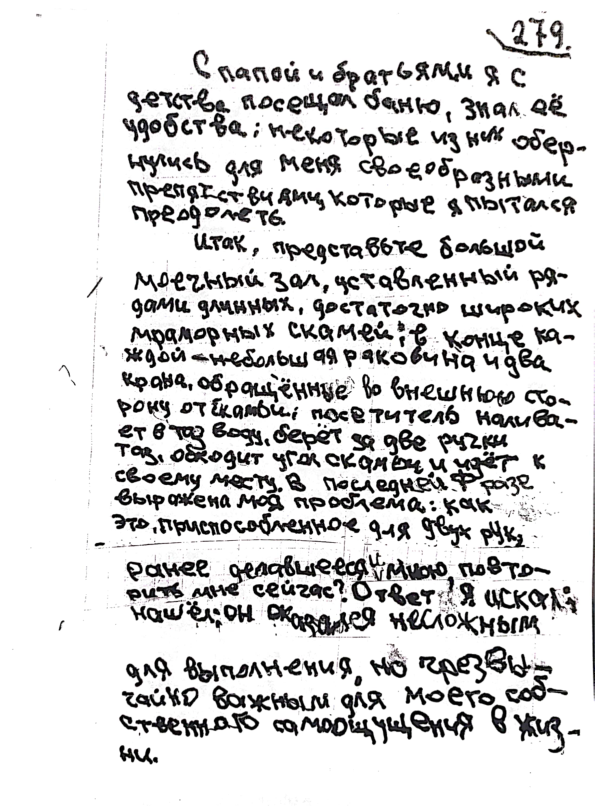 279.
С папой и братьями я с
детства посещал баню, знал её
удобства; некоторые из них обер-
нулись для меня своеобразными
препятствиями, которые я пытался
преодолеть.
Итак, представьте большой
моечный зал, уставленный ря-
дами длинных, достаточно широких
мраморных скамей; в конце ка-
ждой – небольшая раковина и два
крана, обращённые во внешнюю сто-
рону от скамьи; посетитель налива-
ет в таз воду, берёт за две ручки
таз, обходит угол скамьи и идёт к
своему месту. В последней фразе
выражена моя проблема: как
это, приспособленное для двух рук,
ранее делавшееся и мною, повто-
рить мне сейчас? Ответ я искал;
нашёл: он оказался несложным
для выполнения, но чрезвы-
чайно важным для моего соб-
ственного самоощущения в жиз-
ни.